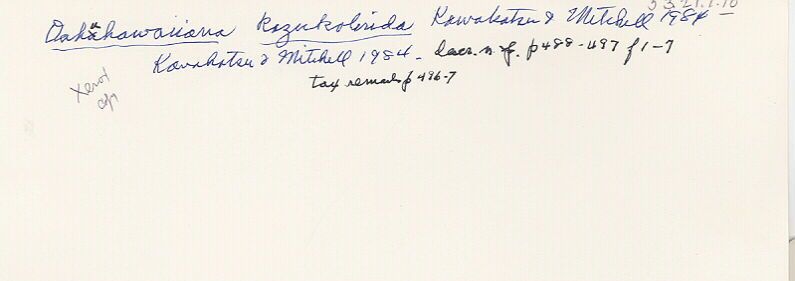 Oahuhawaiiana kazukolinda Kawakatsu & Mitchell 1984
Kawakatsu & Mitchell 1984 - descr. n. sp. p 488-497 f 1-7
tax remarks p 496-7
Xerox
cop